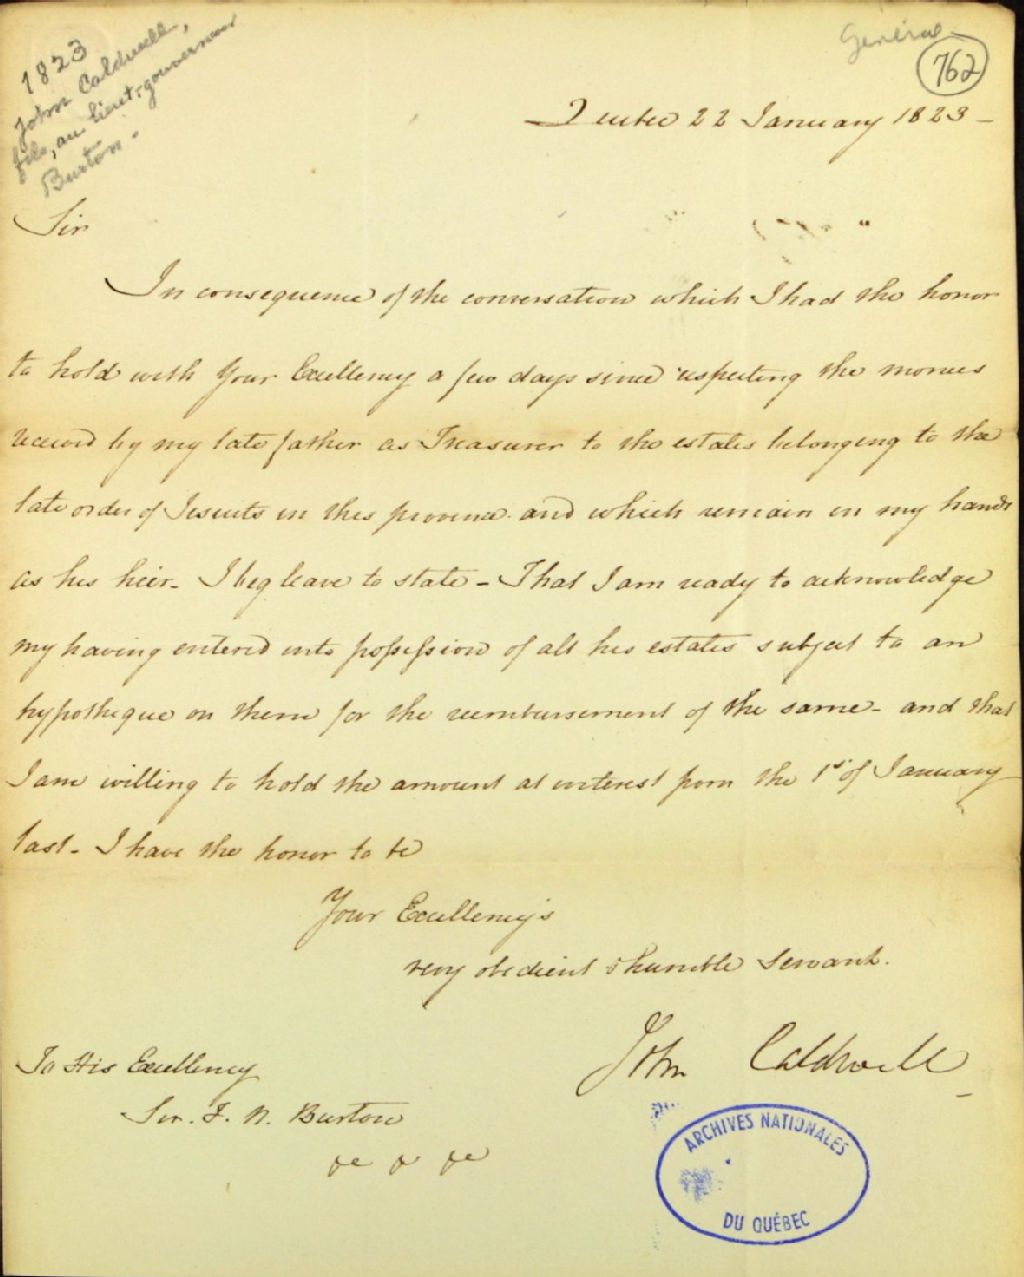 1823
John Caldwell,
fils, au lieut.-gouverneur
Burton.
Général
762
Quebec 22 January 1823 -
Sir
In consequence of the conversation which I had the honor
to hold with Your Excellency a few days since respecting the monies
received by my late father as Treasurer to the estates belonging to the
late order of Jesuits in this province and which remain in my hands
as his heir - I beg leave to state - That I am ready to acknowledge
my having entered into possession of all his estates subject to an
hypotheque on them for the reimbursement of the same - and that
I am willing to hold the amount at interest from the 1st of January
last - I have the honor to be
Your Excellency's
very obedient & humble Servant.
John Caldwell
To His Excellency
Sir. F. N. Burton
&c &c &c
ARCHIVES NATIONALES
DU QUÉBEC